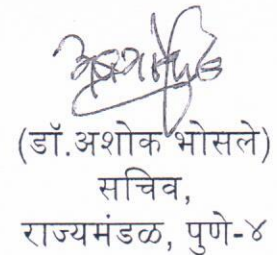 (डॉ.अशोक भोसले)
सचिव,
राज्यमंडळ, पुणे-४